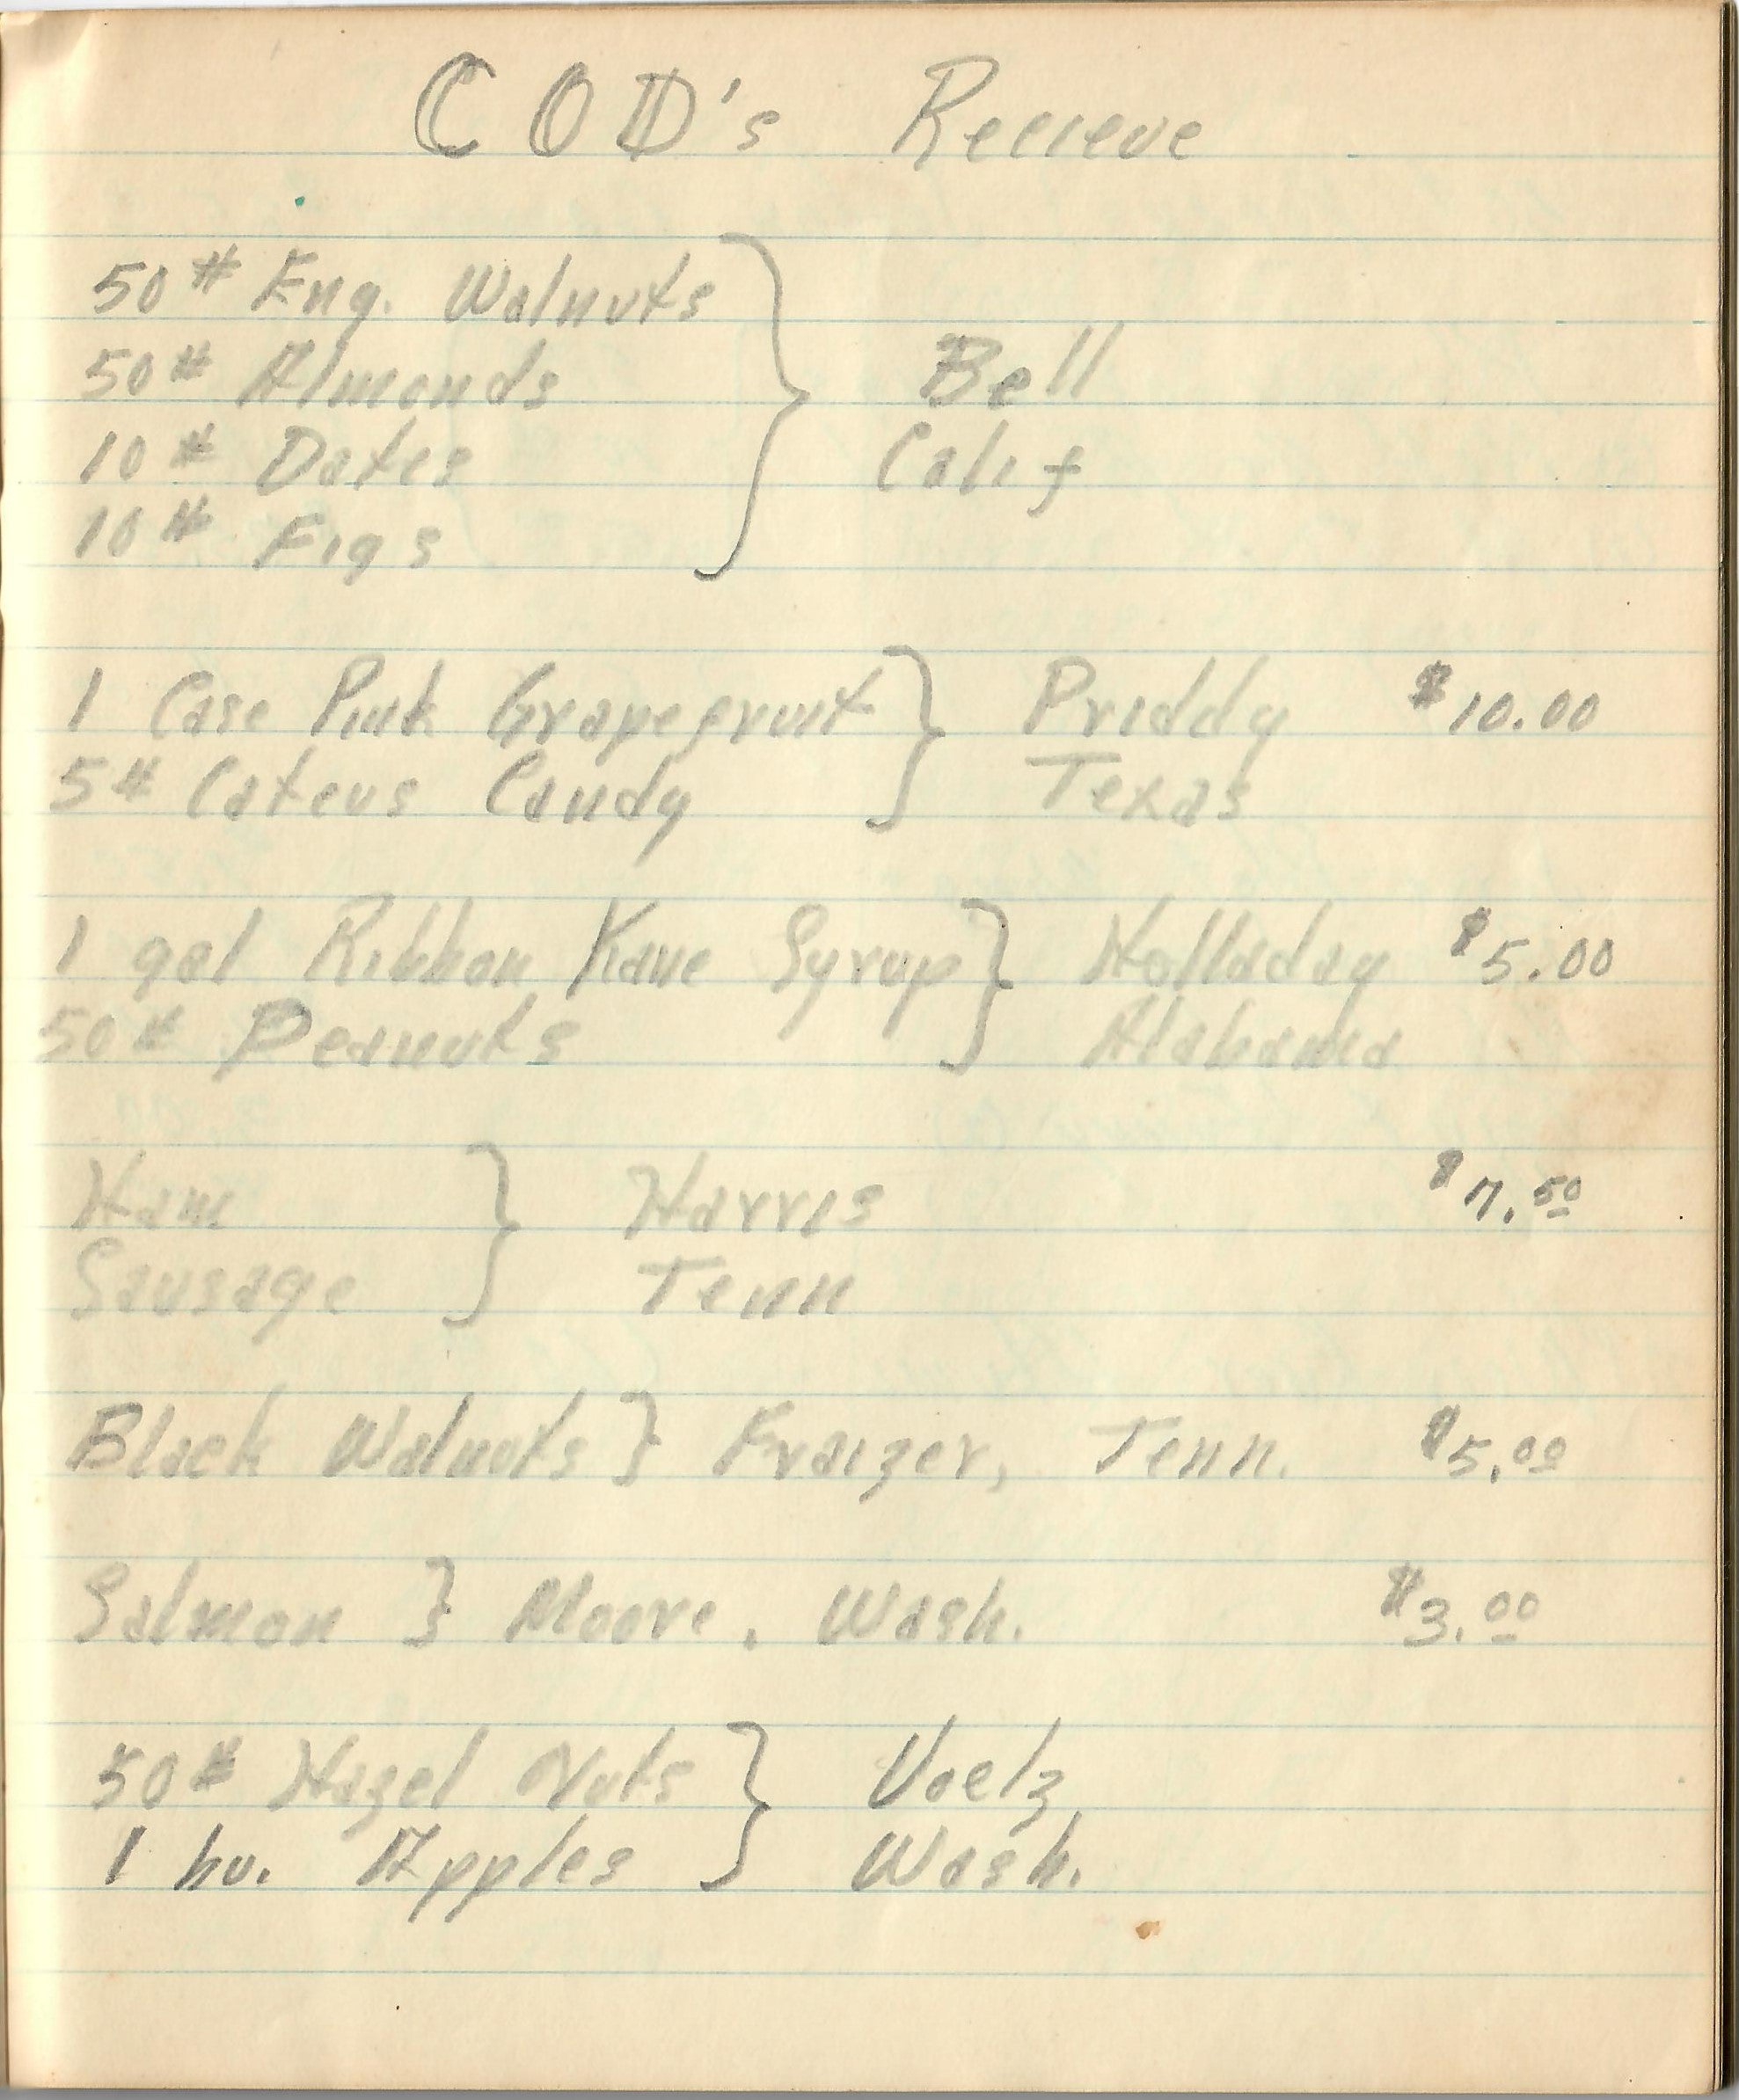 COD's Recieve
50# Eng. Walnuts
50# Almonds
10# Dates
10# Figs
Bell
Calif
1 Case Pink Grapefruit
5# Cateus Candy
Priddy $10.00
Texas
1 gal Ribbon Kane Syrup
50# Peanuts
Holladay $5.00
Alabama
Ham
Sausage
Harris $7.50
Tenn
Black Walnuts } Fraizer, Tenn. $5.00
Salmon } Moore. Wash. $3.00
50# Hazel Nuts
1 bu. Apples
Voelz
Wash.